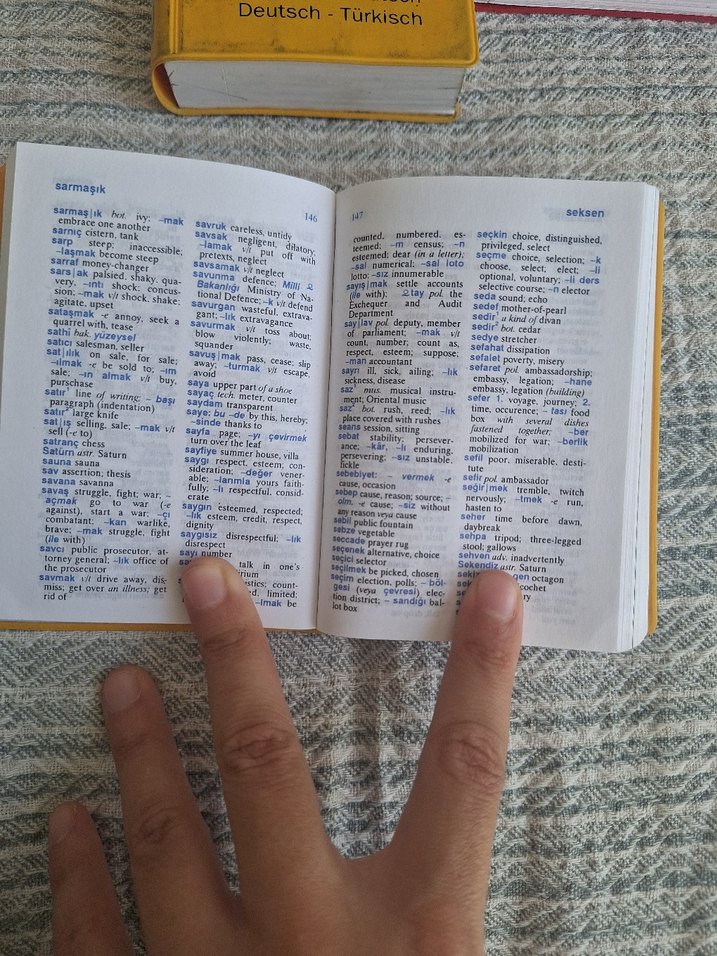 Deutsch - Türkisch
sarmaşık
146
sarmaş|ık bot. ivy; –mak
embrace one another
sarnıç cistern, tank
sarp steep; inaccessible;
–laşmak become steep
sarraf money-changer
sars|ak palsied, shaky, qua-
very, –ıntı shock; concus-
sion; –mak v/t shock, shake;
agitate, upset
sataşmak -e annoy, seek a
quarrel with, tease
sathi bak. yüzeysel
satıcı salesman, seller
sat|ılık on sale, for sale;
–ılmak -e be sold to; –ım
sale; –ın almak v/t buy,
purschase
satır¹ line of writing; – başı
paragraph (indentation)
satır² large knife
sat|ış selling, sale; –mak v/t
sell (-e to)
satranç chess
Satürn astr. Saturn
sauna sauna
sav assertion; thesis
savana savanna
savaş struggle, fight; war; –
açmak go to war (-e
against), start a war; –çı
combatant; –kan warlike,
brave; –mak struggle, fight
(ile with)
savcı public prosecutor, at-
torney general; –lık office of
the prosecutor
savmak v/t drive away, dis-
miss; get over an illness; get
rid of
savruk careless, untidy
savsak negligent, dilatory;
–lamak v/t put off with
pretexts, neglect
savsamak v/t neglect
savunma defence; Milli ≗
Bakanlığı Ministry of Na-
tional Defence; –k v/t defend
savurgan wasteful, extrava-
gant; –lık extravagance
savurmak v/t toss about;
blow violently; waste,
squander
savuş|mak pass, cease; slip
away; –turmak v/t escape,
avoid
saya upper part of a shoe
sayaç tech. meter, counter
saydam transparent
saye: bu –de by this, hereby;
–sinde thanks to
sayfa page; –yı çevirmek
turn over the leaf
sayfiye summer house, villa
saygı respect, esteem, con-
sideration; –değer vener-
able; –larımla yours faith-
fully; –lı respectful, consid-
erate
saygın esteemed, respected;
–lık esteem, credit, respect,
dignity
saygısız disrespectful; –lık
disrespect
sayı number
talk in one's
count-
limited;
–lmak be
147
seksen
counted, numbered, es-
teemed; –m census; –n
esteemed; dear (in a letter);
–sal numerical; –sal loto
lotto; –sız innumerable
sayış|mak settle accounts
(ile with); ≗tay pol. the
Exchequer and Audit
Department
say|lav pol. deputy, member
of parliament; –mak v/t
count, number; count as,
respect, esteem; suppose;
–man accountant
sayrı ill, sick, ailing; –lık
sickness, disease
saz¹ mus. musical instru-
ment; Oriental music
saz² bot. rush, reed; –lık
place covered with rushes
seans session, sitting
sebat stability; persever-
ance; –kâr, –lı enduring,
persevering; –sız unstable,
fickle
sebebiyet: – vermek -e
cause, occasion
sebep cause, reason; source; –
olm. -e cause; –siz without
any reason veya cause
sebil public fountain
sebze vegetable
seccade prayer rug
seçenek alternative, choice
seçici selector
seçilmek be picked, chosen
seçim election, polls; – böl-
gesi (veya çevresi) elec-
tion district; – sandığı bal-
lot box
seçkin choice, distinguished,
privileged, select
seçme choice, selection; –k
choose, select; elect; –li
optional, voluntary; –li ders
selective course; –n elector
seda sound; echo
sedef mother-of-pearl
sedir¹ a kind of divan
sedir² bot. cedar
sedye stretcher
sefahat dissipation
sefalet poverty, misery
sefaret pol. ambassadorship;
embassy, legation; –hane
embassy, legation (building)
sefer 1. voyage, journey; 2.
time, occurence; – tası food
box with several dishes
fastened together; –ber
mobilized for war; –berlik
mobilization
sefil poor, miserable, desti-
tute
sefir pol. ambassador
seğir|mek tremble, twitch
nervously; –tmek -e run,
hasten to
seher time before dawn,
daybreak
sehpa tripod; three-legged
stool; gallows
sehven adv. inadvertently
Sekendiz astr. Saturn
gen octagon